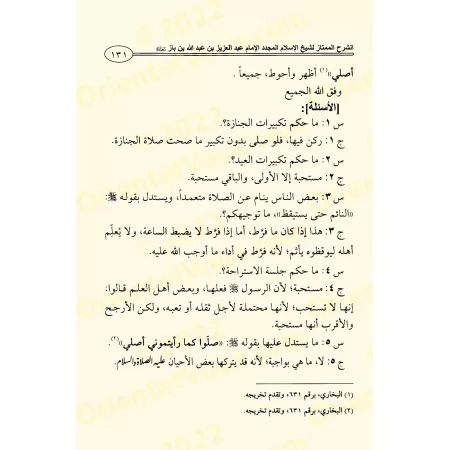 الشرح الممتاز لشيخ الإسلام المجدد الإمام عبد العزيز بن عبد الله بن باز رحمه الله
١٣١
أصلي»(١) أظهر وأحوط، جميعاً .
وفق الله الجميع
[الأسئلة]:
س ١: ما حكم تكبيرات الجنازة؟.
ج ١: ركن فيها، فلو صلى بدون تكبير ما صحت صلاة الجنازة.
س ٢: ما حكم تكبيرات العيد؟.
ج ٢: مستحبة إلا الأولى، والباقي مستحبة.
س ٣: بعض الناس ينام عن الصلاة متعمداً، ويستدل بقوله ﷺ:
«النائم حتى يستيقظ»، ما توجيهكم؟.
ج ٣: هذا إذا كان ما فرَّط، أما إذا فرَّط لا يضبط الساعة، ولا يُعلِّم
أهله ليوقظوه يأثم؛ لأنه فرَّط في أداء ما أوجب الله عليه.
س ٤: ما حكم جلسة الاستراحة؟.
ج ٤: مستحبة؛ لأن الرسول ﷺ فعلها، وبعض أهل العلم قالوا:
إنها لا تستحب؛ لأنها محتملة لأجل ثقله أو تعبه، ولكن الأرجح
والأقرب أنها مستحبة.
س ٥: ما يستدل عليها بقوله ﷺ: «صلّوا كما رأيتموني أصلي»(٢).
ج ٥: لا، ما هي بواجبة؛ لأنه قد يتركها بعض الأحيان عليه الصلاة والسلام.
(١) البخاري، برقم ٦٣١، وتقدم تخريجه.
(٢) البخاري، برقم ٦٣١، وتقدم تخريجه.